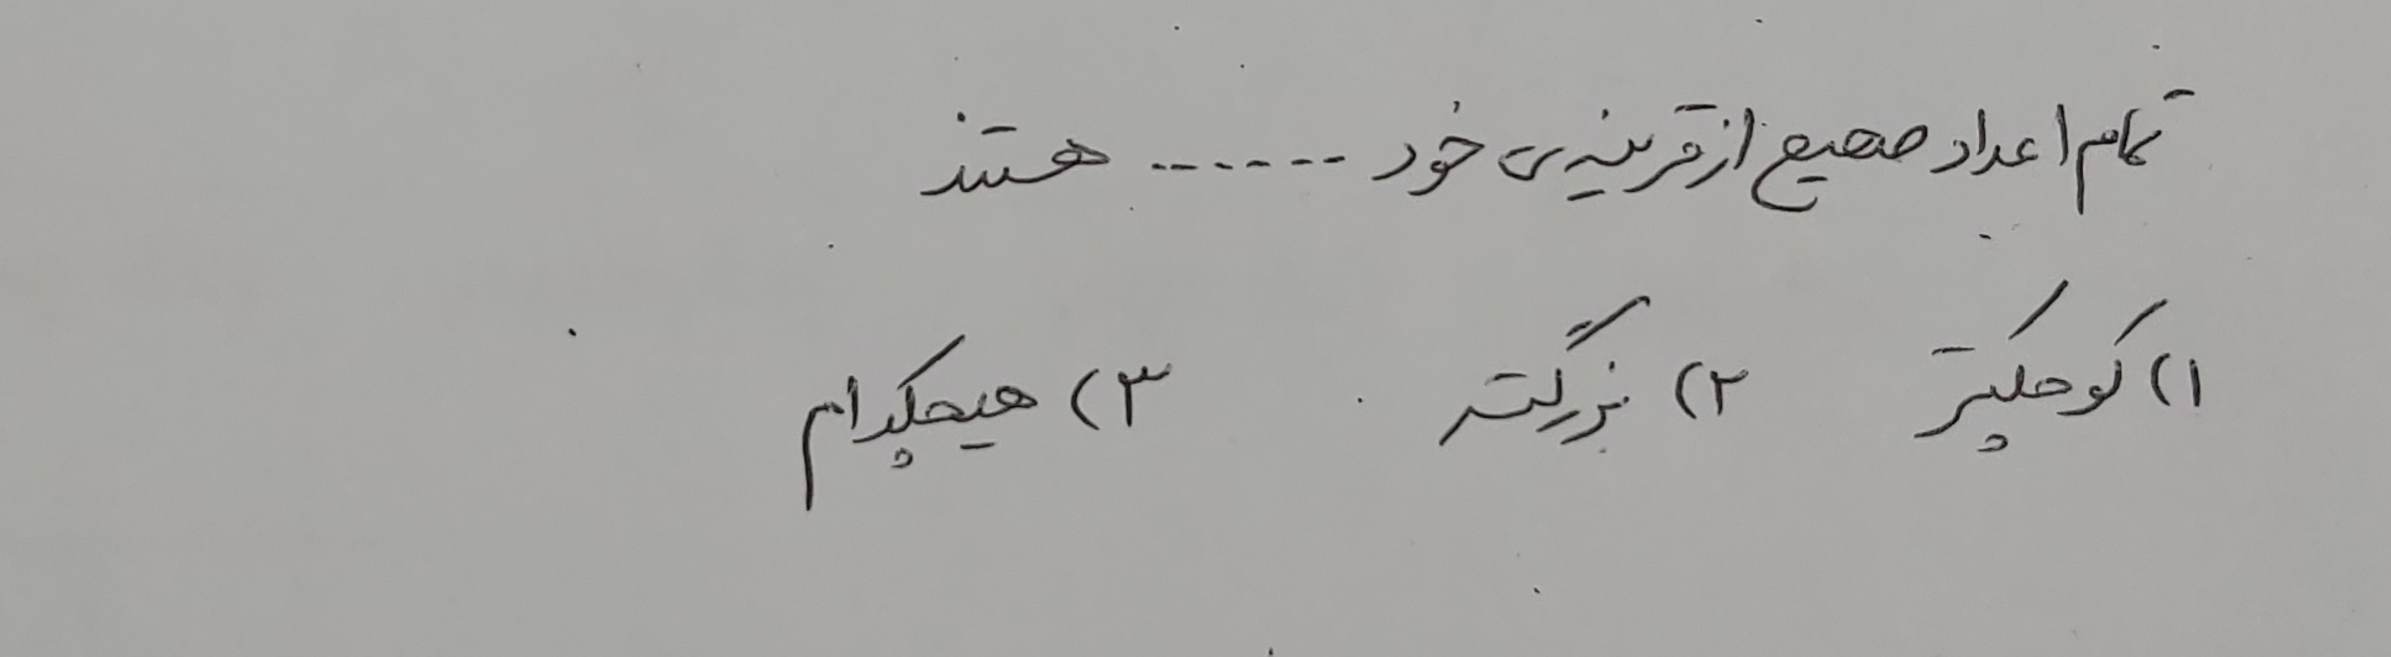 تمام اعداد صحیح از قرینه‌ی خود ...... هستند
۱) کوچکتر ۲) بزرگتر ۳) هیچکدام